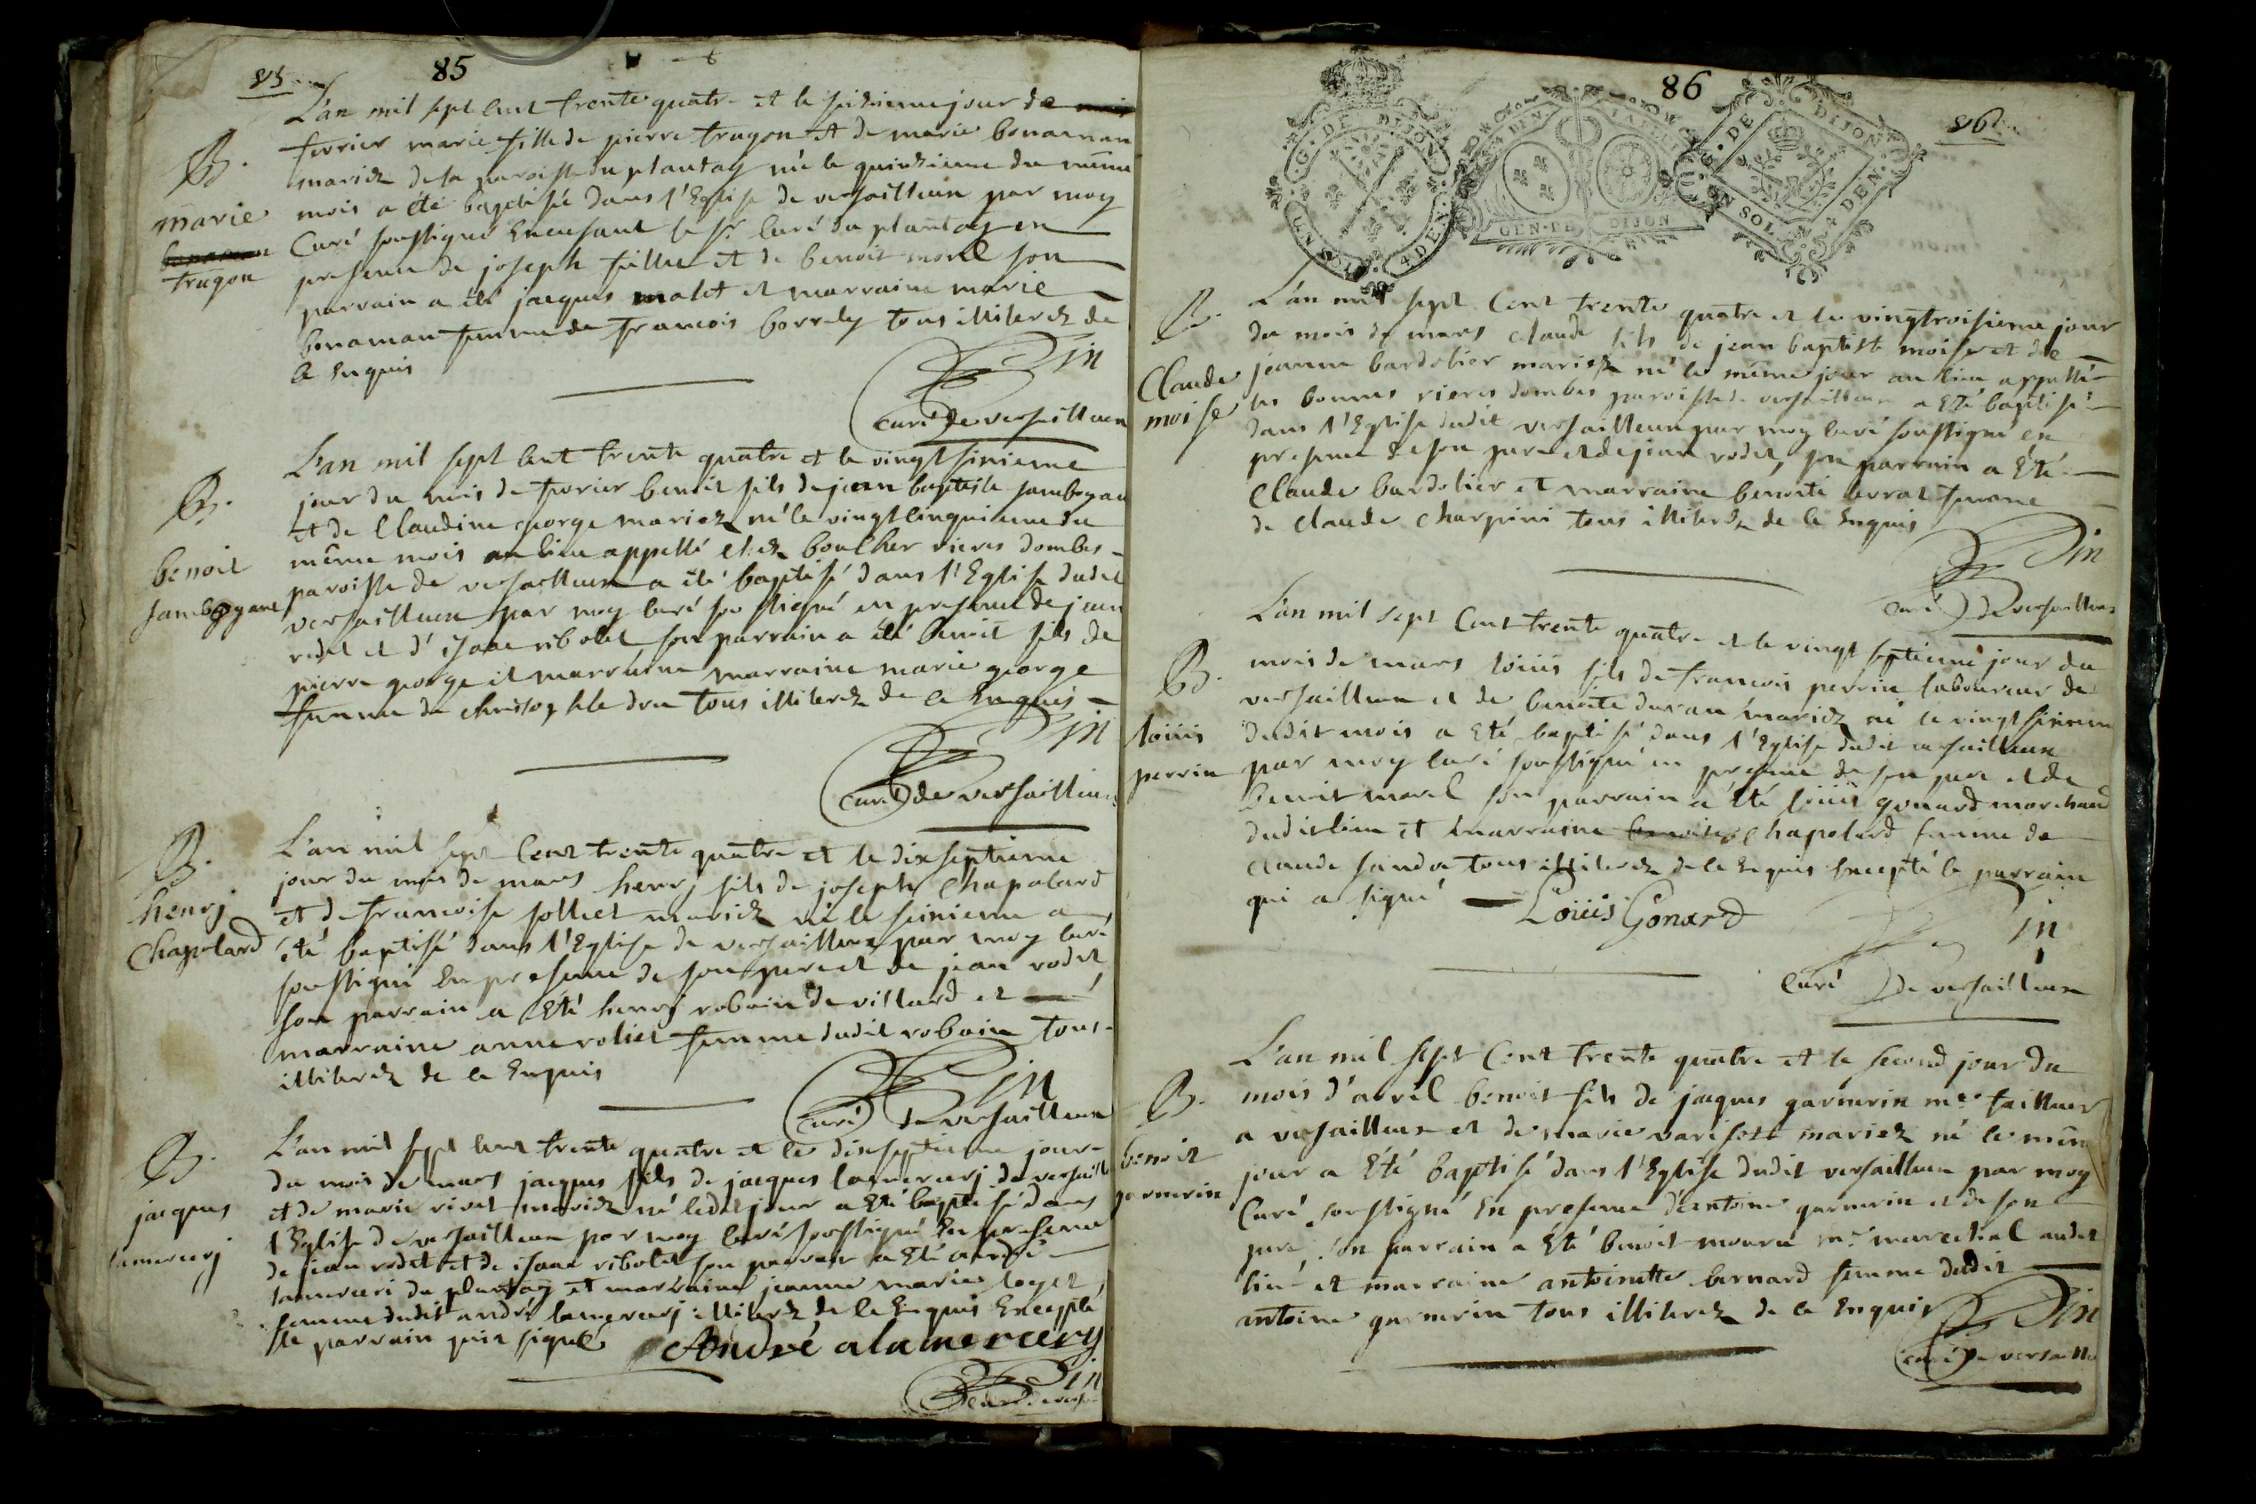 85
L'an mil sept cent trente quatre et le seizieme jour de
fevrier marie fille de pierre trugon et de marie bonaman
mariez de la paroisse du plantay né le quinzieme du même
mois a été baptisée dans l'Eglise de versailleux par moy
Curé soussigné en presence de joseph et de benoit morel son
parrain a été jacques malet et marraine marie
bonaman femme de francois borrely tous illiterez de
ce Enquis
B.
marie
trugon
curé de versailleux
L'an mil sept cent trente quatre et le vingt sixieme
jour du mois de fevrier benoit fils de jean baptiste jambogane
et de Claudine george mariez né le vingt cinquieme du
même mois au lieu appellé chez boulher rieres dombes
paroisse de versailleux a été baptisé dans l'Eglise dudit
versailleux par moy curé soussigné en presence de jean
rodet et d'isaac ribolet, son parrain a été benoit fils de
pierre george et marraine marraine marie george
femme de christophle dru tous illiterez de ce Enquis
B.
benoit
jambogane
curé de versailleux
L'an mil sept Cent trente quatre et le dixseptieme
jour du mois de mars henrj fils de joseph Chapolard
et de francoise jolliet mariez né le seizieme a
été baptisé dans l'Eglise de versailleux par moy curé
soussigné En presence de son pere et de jean rodet
son parrain a Eté henrj robain de villard et
marraine anne roliet femme dudit robain tous
illiterez de ce Enquis
B.
henrj
Chapolard
curé de versailleux
L'an mil sept cent trente quatre et le dixseptieme jour
du mois de mars jacques fils de jacques lamercerj de versaille
et de marie rivet mariez né ledit jour a Eté baptisé dans
l'Eglise de versailleux par moy curé soussigné En presence
de jean rodet et de isaac ribolet son parrain a Eté andré
lamerceri du plantay et marraine jeanne marie loyet
femme dudit andré lamercerj illiterez de ce Enquis Excepté
le parrain qui a signé André alamercery
B.
jacques
lamercerj
86
G. DE DIJON
UN SOL. 4 DEN.
GEN. DE DIJON
G. DE DIJON
UN SOL. 4 DEN.
L'an mil sept Cent trente quatre et le vingtroisieme jour
du mois de mars claude fils de jean baptiste moise et de
jeanne bardelier mariez né le même jour au lieu appellé
les bonnes rieres dombes paroisse de versailleux a Eté baptisé
dans l'Eglise dudit versailleux par moy curé soussigné en
presence de son pere et de jean rodet, son parrain a Eté
Claude bardelier et marraine benoite ferrat femme
de claude charpini tous illiterez de ce Enquis
B.
Claude
moise
curé de versailleux
L'an mil sept Cent trente quatre et le vingt septieme jour du
mois de mars loüis fils de francois perrin laboureur de
versailleux et de benoite duran mariez né le vingt sixieme
dudit mois a Eté baptisé dans l'Eglise dudit versailleux
par moy curé soussigné en presence de son pere et de
benoit morel son parrain a Eté loüis gonard marchand
dudit lieu et marraine Chapolard femme de
claude tous illiterez de ce Enquis Excepté le parrain
qui a signé Loüis Gonard
B.
loüis
perrin
Curé de versailleux
L'an mil sept Cent trente quatre et le second jour du
mois d'avril benoit fils de jacques garnerin me tailleur
a versailleux et de marie mariez né le même
jour a Eté baptisé dans l'Eglise dudit versailleux par moy
Curé soussigné En presence d'antoine garnerin et de son
pere son parrain a Eté benoit me marechal audit
lieu et marraine antoinette bernard femme dudit
antoine garnerin tous illiterez de ce Enquis
B.
benoit
garnerin
curé de versaille